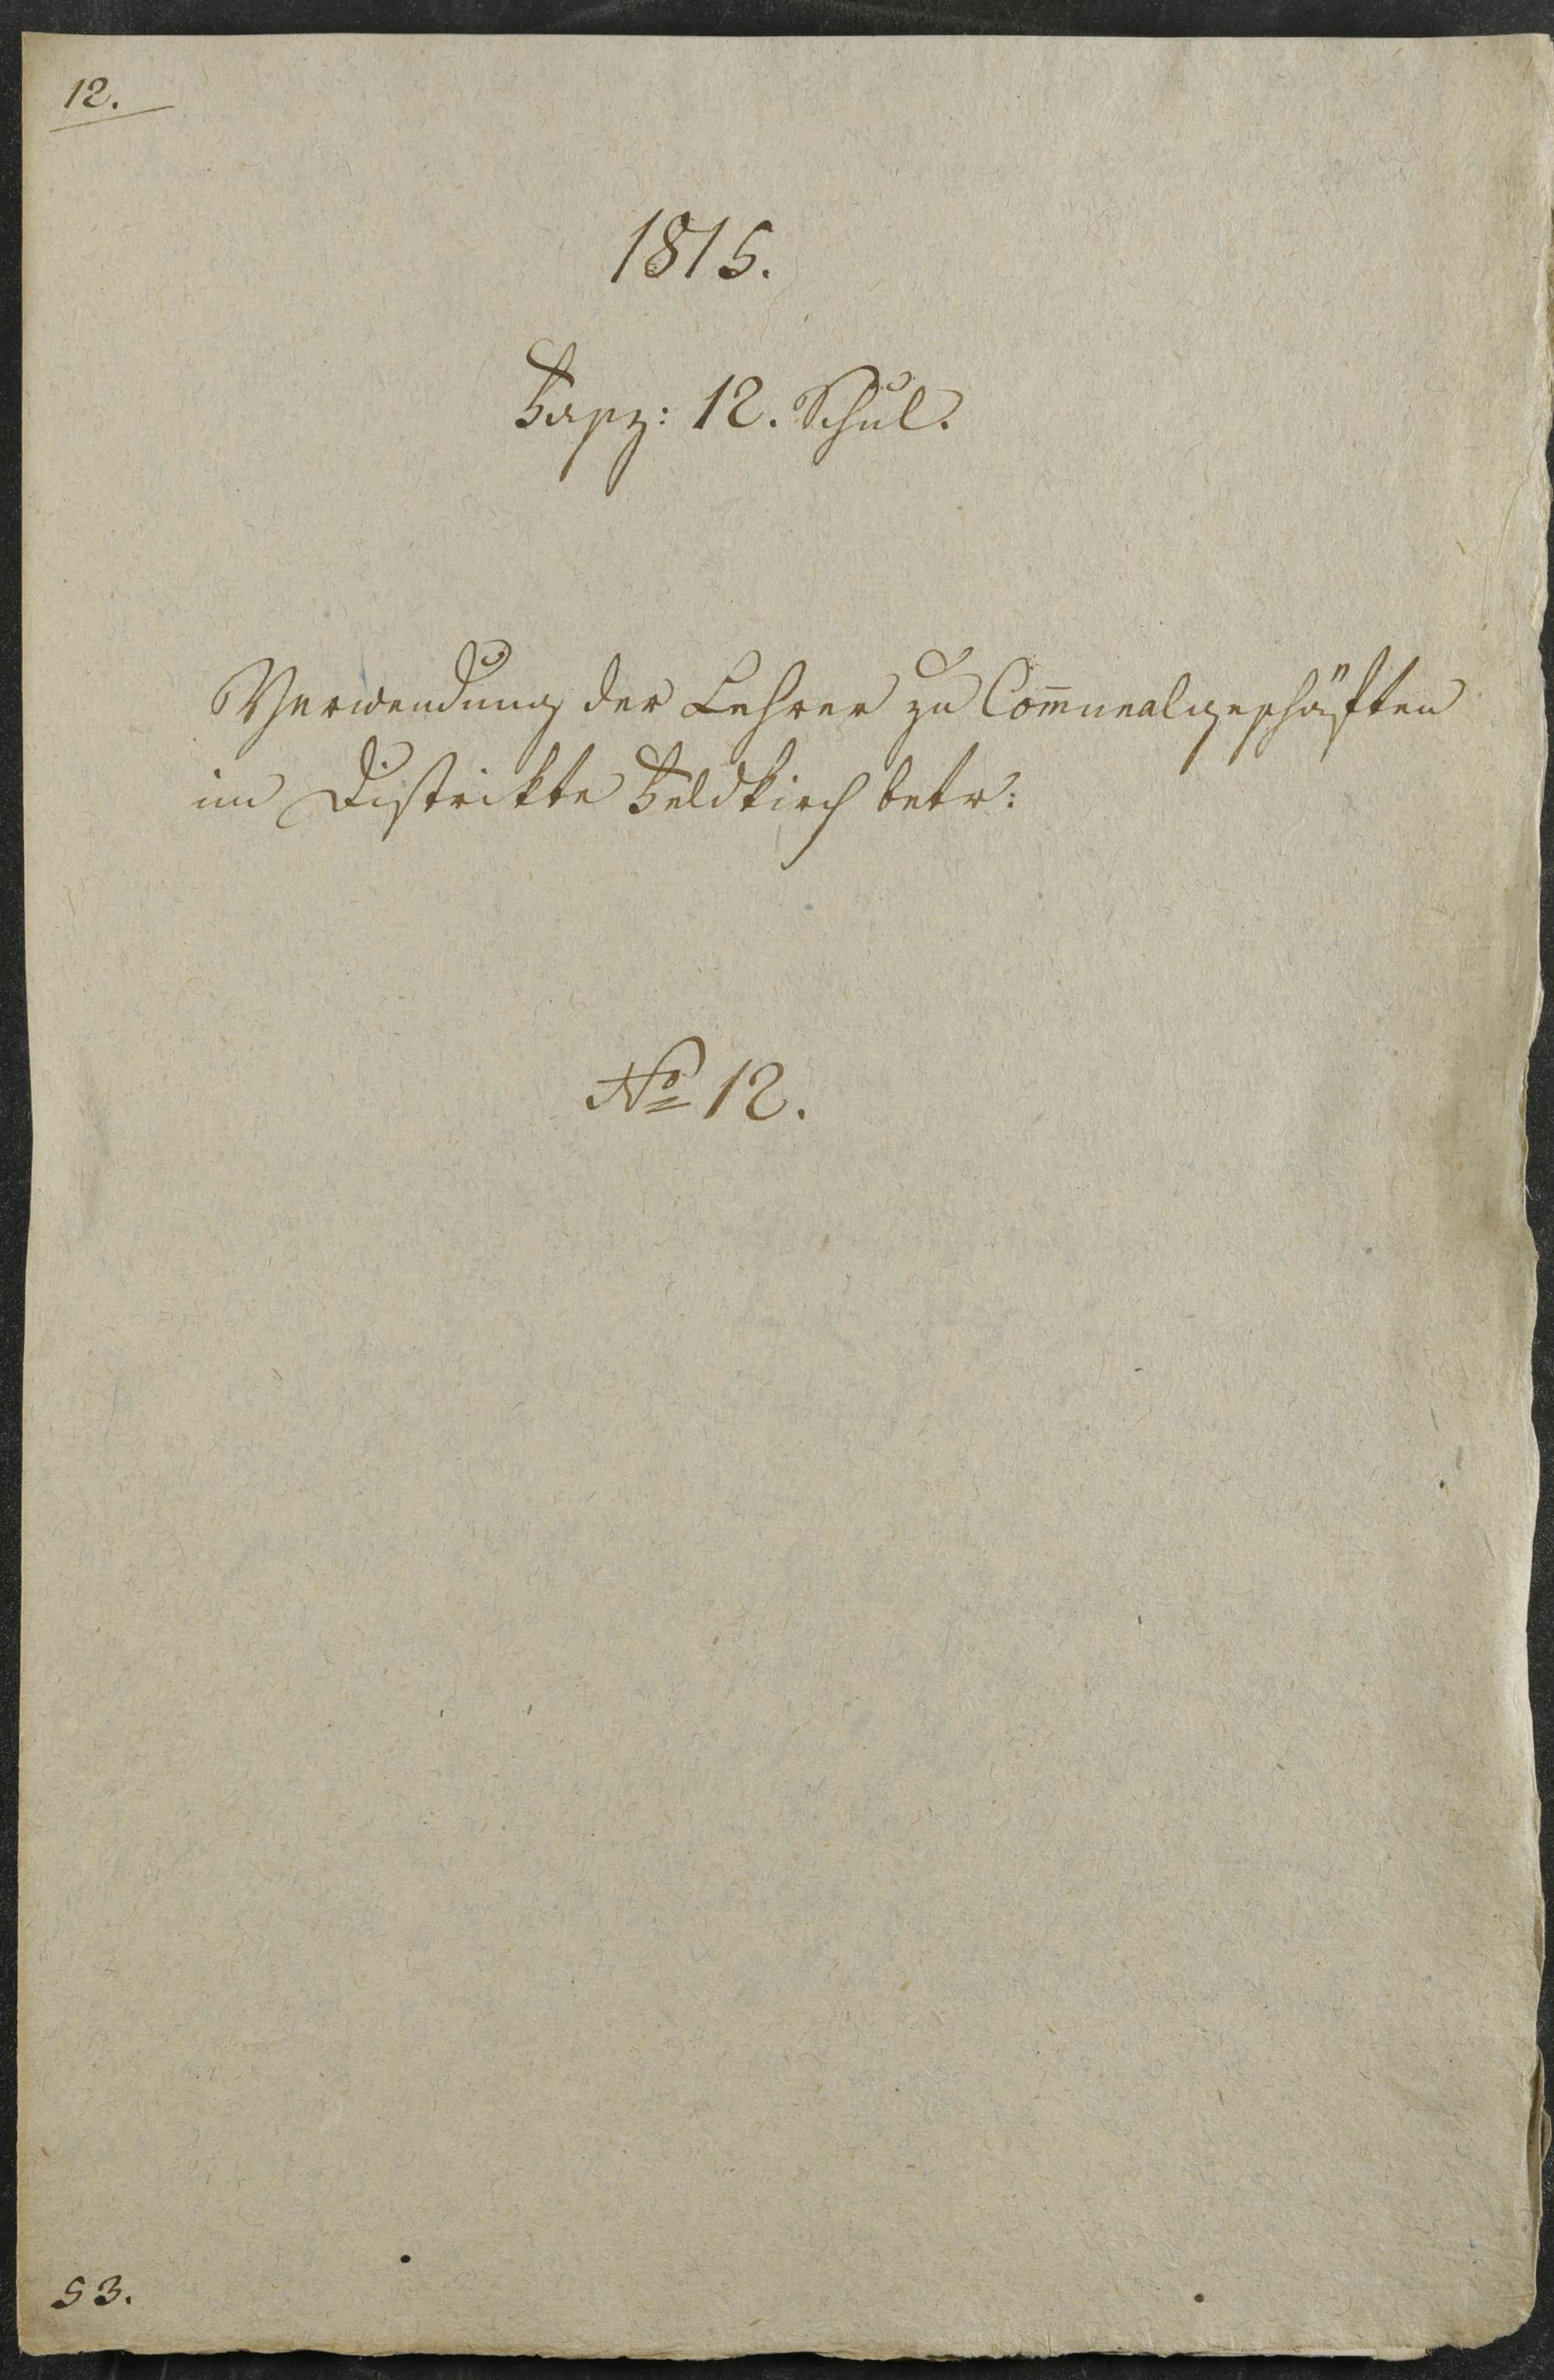 12.
1815.
Fasz: 12. Schul.
Verwendung der Lehrer zu Com̄unalgeschäften
im Distrikte Feldkirch betr:
No 12.
53.